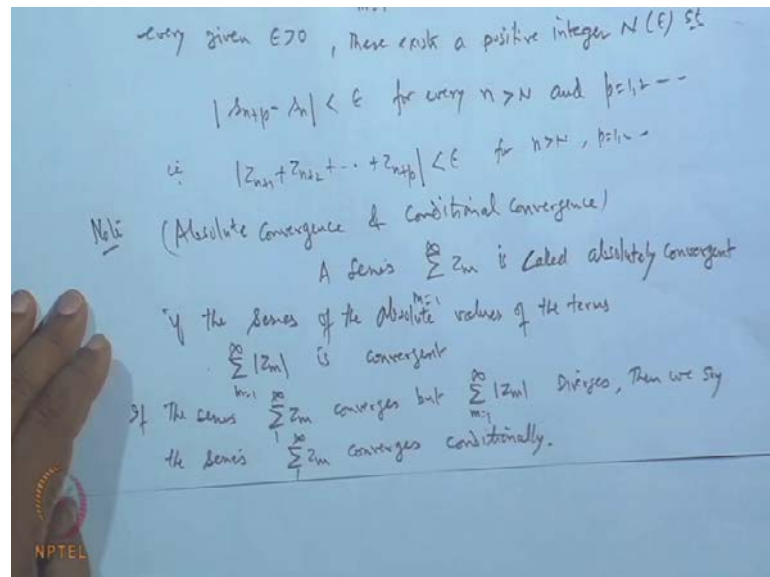 every given ε>0, there exists a positive integer N(ε) st
|Sn+p - Sn| < ε for every n>N and p=1,2 ---
i.e. |Zn+1 + Zn+2 + -- + Zn+p| < ε for n>N, p=1,2 --
Note (Absolute Convergence & Conditional Convergence)
A Series ∑_{m=1}^{∞} Zm is Called absolutely convergent
if the series of the absolute values of the terms
∑_{m=1}^{∞} |Zm| is convergent
If The series ∑_{1}^{∞} Zm converges but ∑_{m=1}^{∞} |Zm| Diverges, Then we say
the Series ∑_{1}^{∞} Zm converges conditionally.
NPTEL